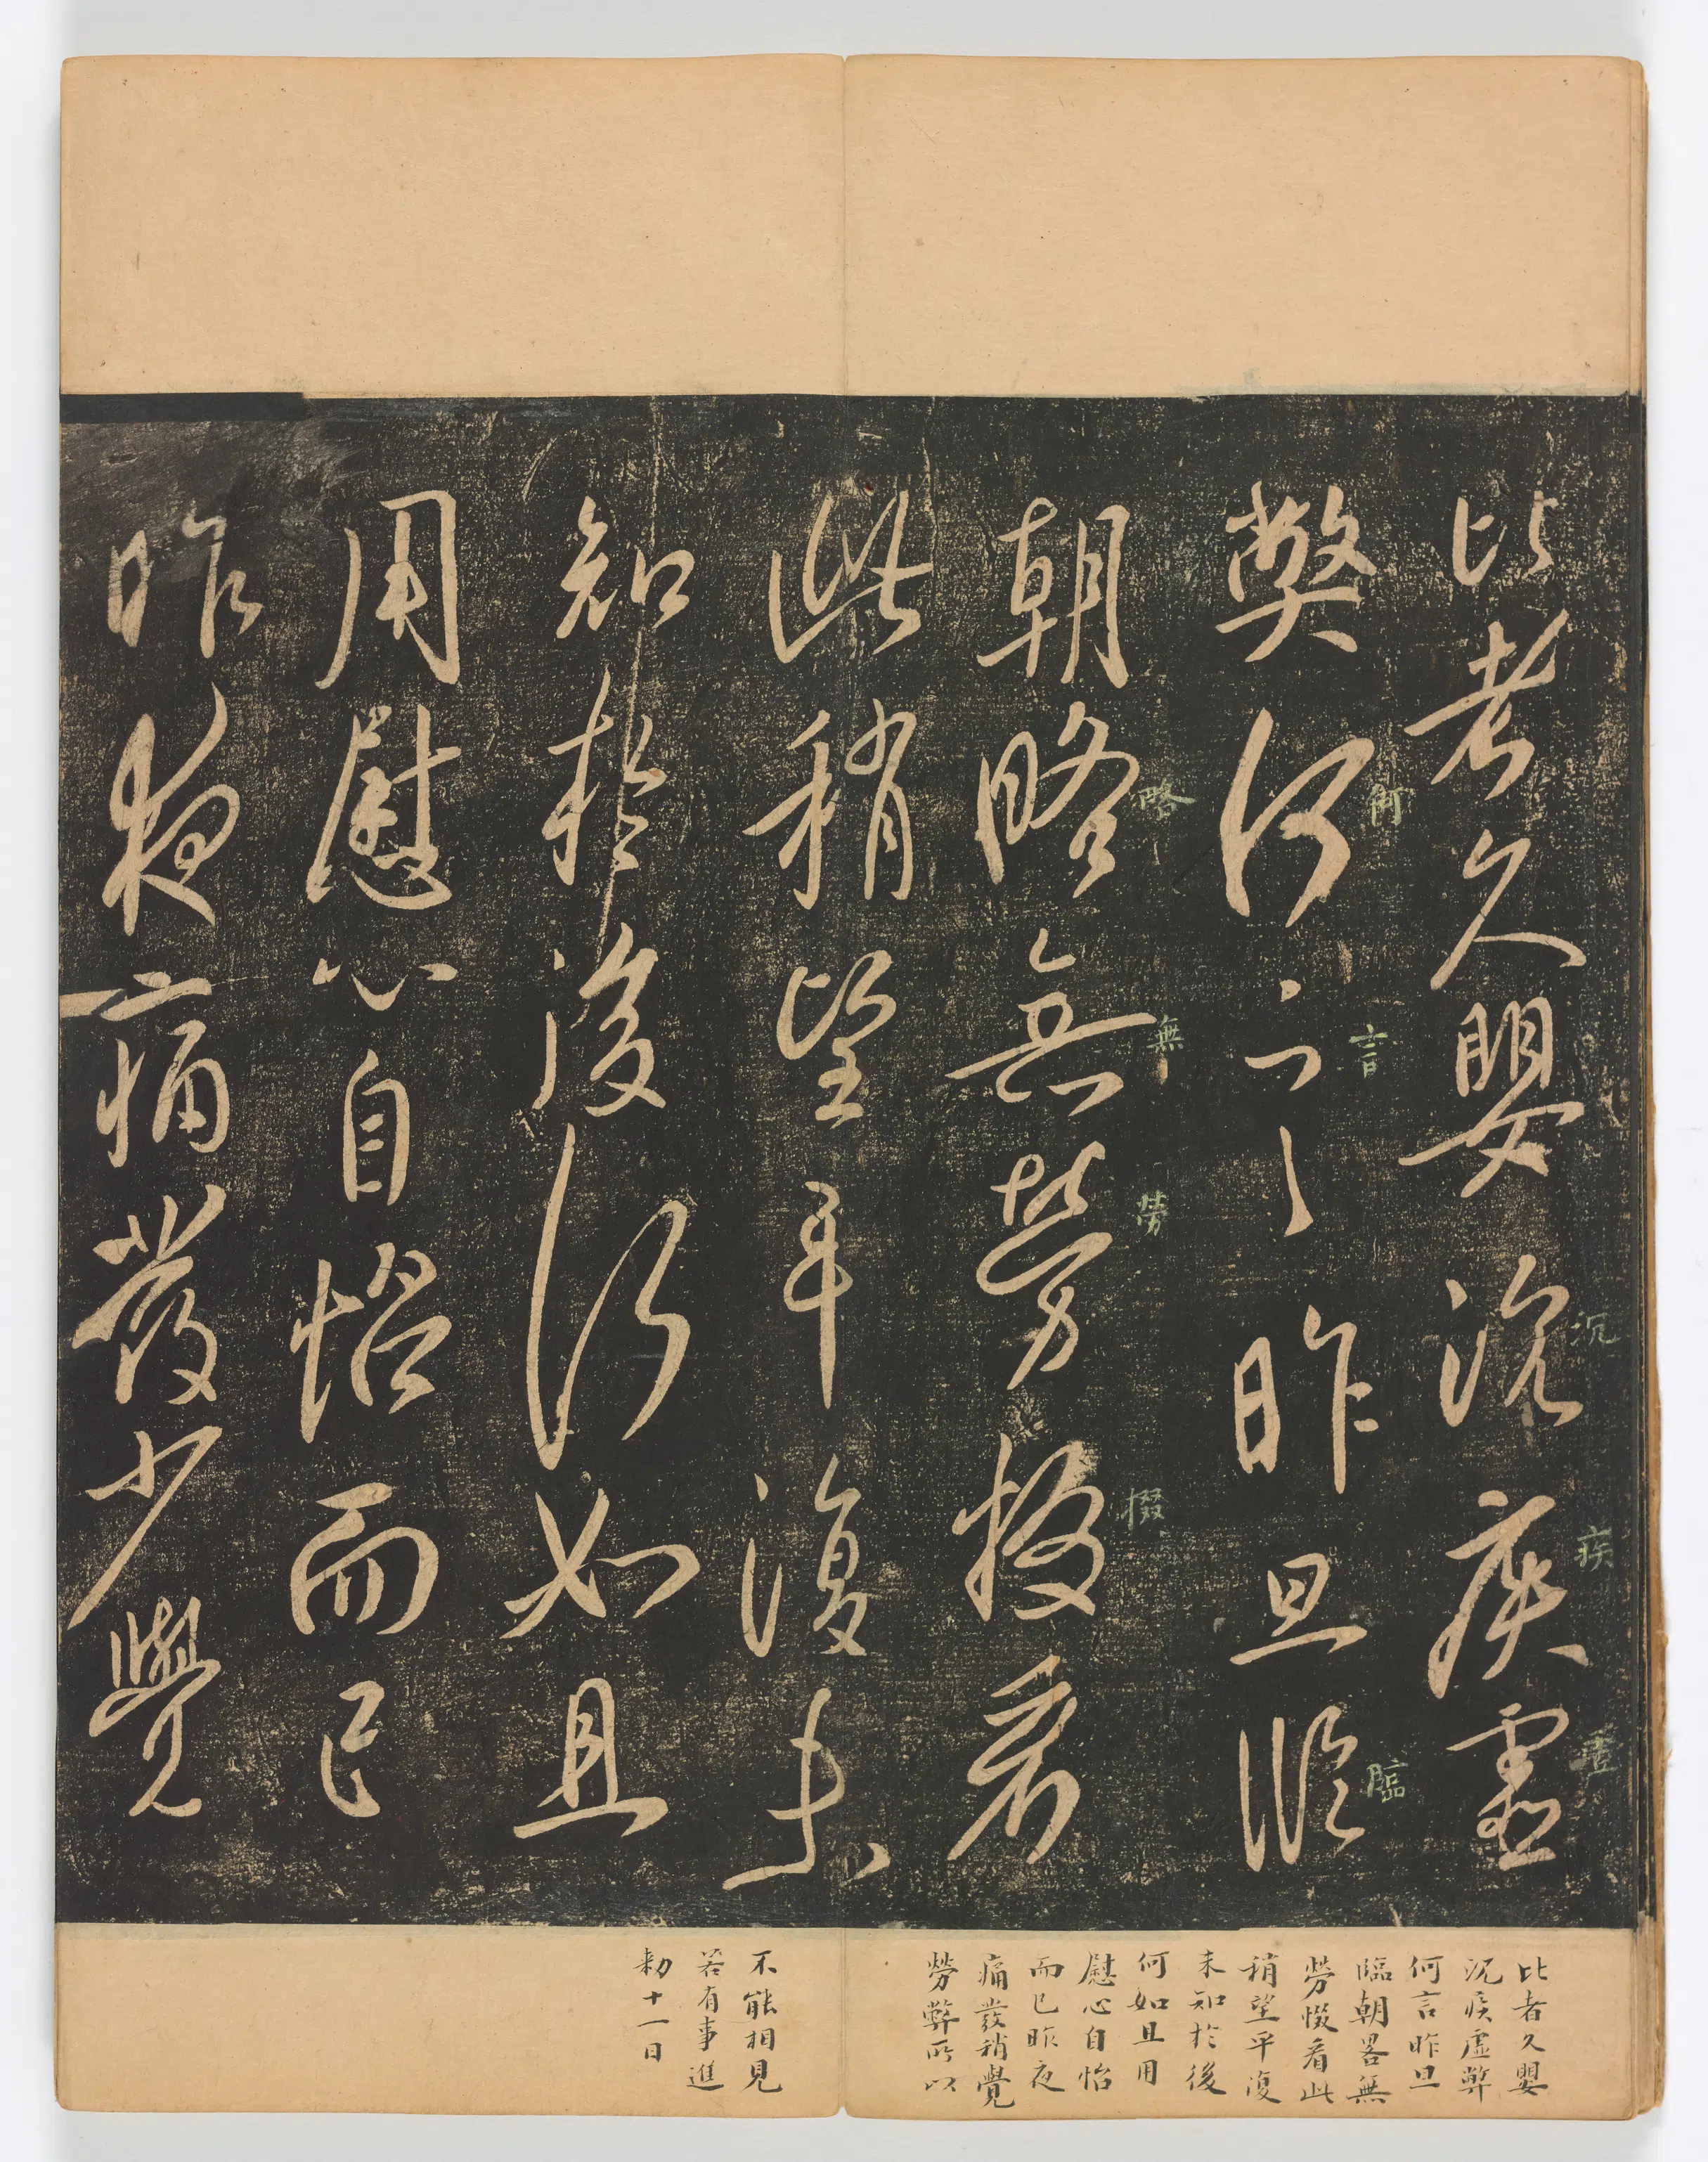 比者久嬰沉疾虛
弊何言昨旦臨
朝略無勞掇看
此稍望平復未
知於後何如且
用慰心自怡而已
昨夜痛發少覺
沉
疾
虛
何
言
臨
略
無
勞
掇
比者久嬰
沉疾虛弊
何言昨旦
臨朝畧無
勞惙看此
稍望平復
未知於後
何如且用
慰心自怡
而已昨夜
痛發稍覺
勞弊所以
不能相見
若有事進
勅十一日